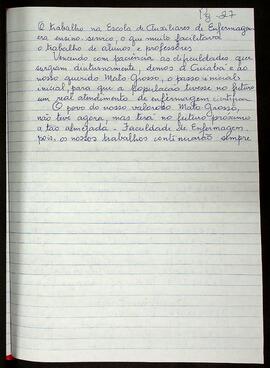 27
O trabalho na Escola de Auxiliares de Enfermagem
era ensino serviço, o que muito facilitava
o trabalho de alunos e professores.
Vencendo com paciência as dificuldades que
surgiam diuturnamente, demos a Cuiabá e ao
nosso querido Mato Grosso, o passo inicial
inicial, para que a população tivesse no futuro
um real atendimento de enfermagem científica.
O povo do nosso valoroso Mato Grosso,
não teve agora, mas terá no futuro próximo
a tão almejada - Faculdade de Enfermagem,
pois, os nossos trabalhos continuarão sempre